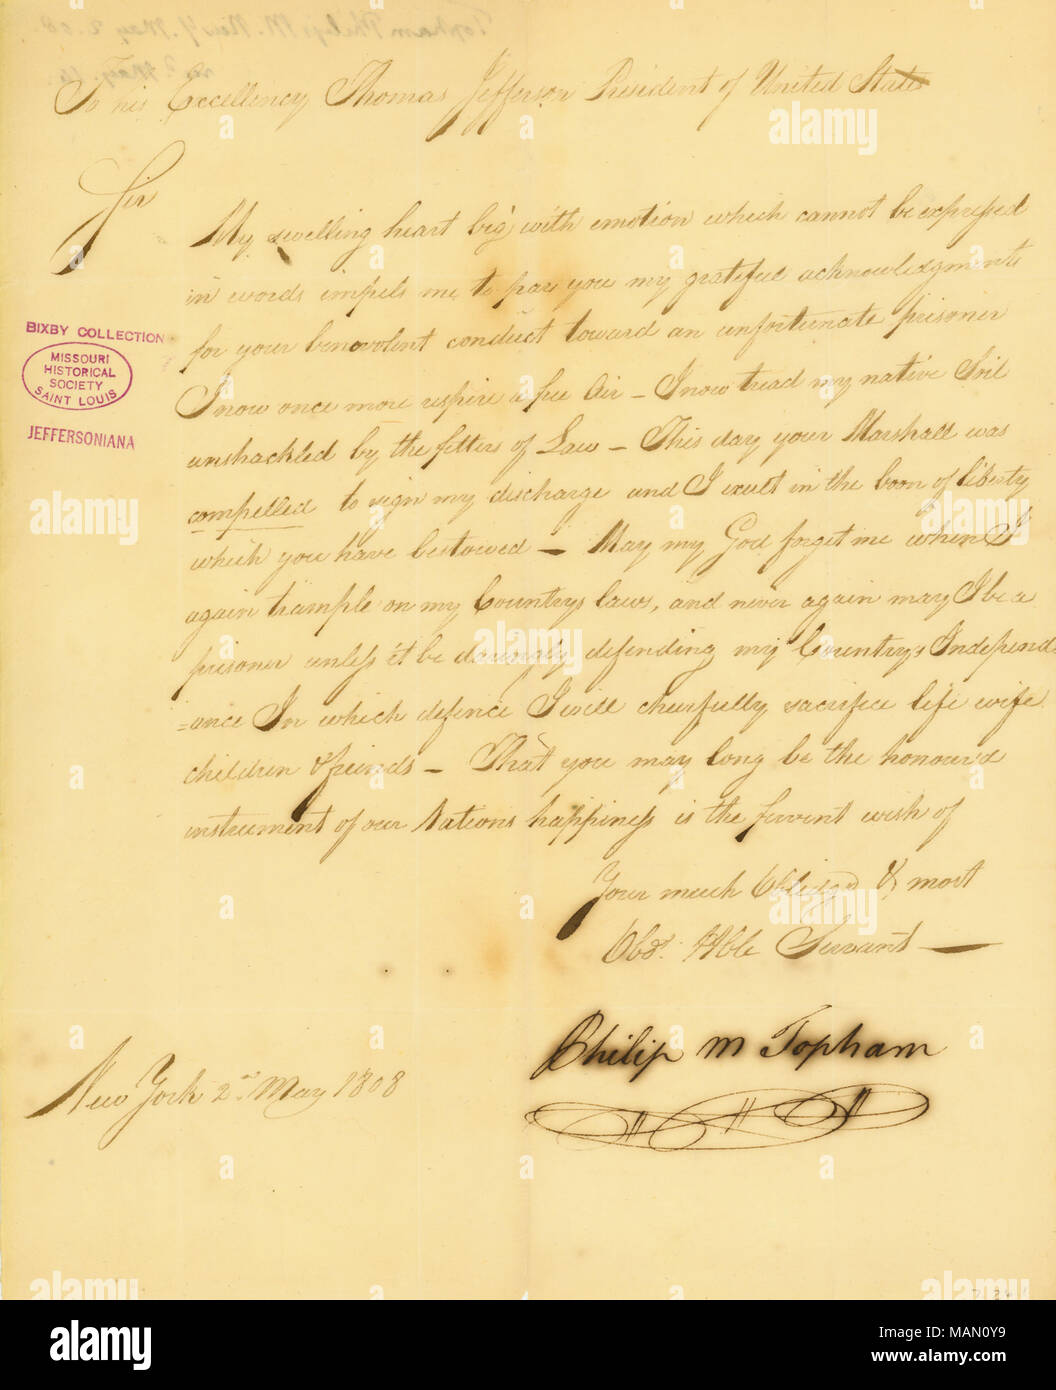 To his Excellency Thomas Jefferson President of United States
Sir
My swelling heart big with emotion which cannot be expressed
in words impels me to pay you my grateful acknowledgments
for your benevolent conduct toward an unfortunate prisoner
I now once more respire a free Air – I now tread my native Soil
unshackled by the fetters of Law – This day your Marshall was
compelled to sign my discharge and I exult in the boon of liberty
which you have bestowed – May my God forget me when I
again trample on my Countrys laws, and never again may I be a
prisoner unless it be daringly defending my Countrys Independ
=ance In which defence I will cheerfully sacrifice life wife
children & friends – That you may long be the honour'd
instrument of our Nations happiness is the fervent wish of
Your much Obliged & most
Obdt. Hble Servant
Philip M Topham
New York 2nd May 1808
BIXBY COLLECTION
MISSOURI
HISTORICAL
SOCIETY
SAINT LOUIS
JEFFERSONIANA
Topham Philip M. New Y. May 2. 08.
recd May. 16.
alamy
alamy
alamy
alamy
alamy
alamy
alamy
alamy
alamy
a alamy
Image ID: MAN0Y9
www.alamy.com